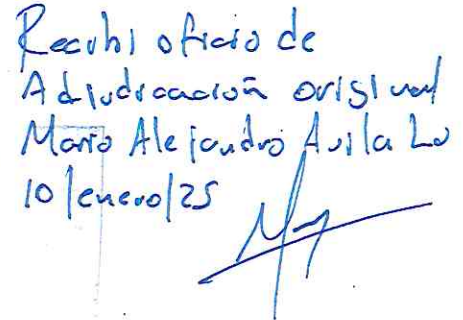 Recibi oficio de
Adjudicación original
Mario Alejandro Avila Lu
10/enero/25